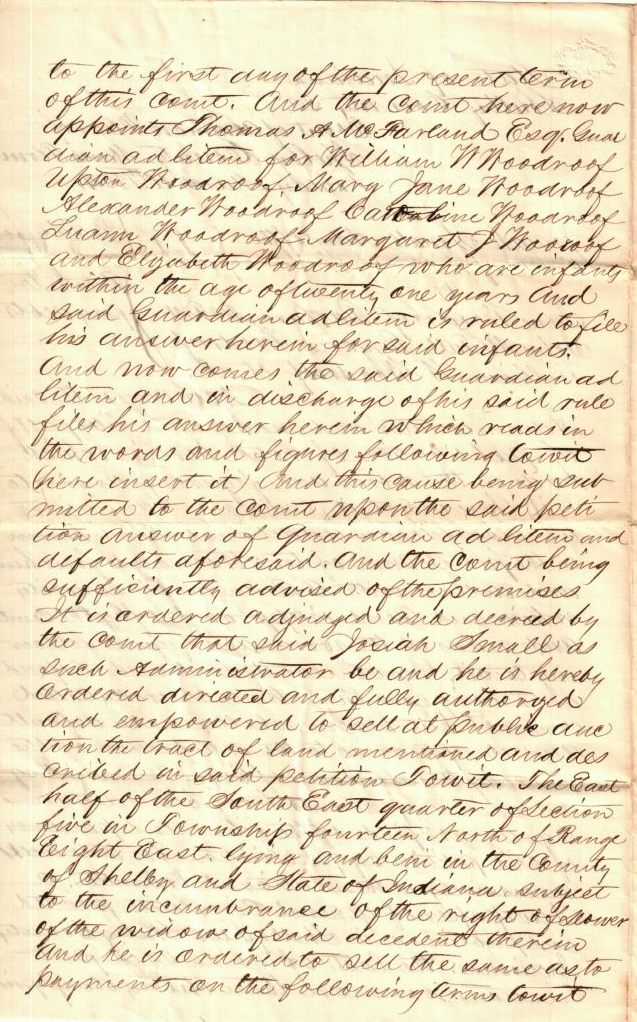 to the first day of the present term
of this court. And the court here now
appoints Thomas A. McFarland Esq. Guar
dian ad litem for William W Woodroof
Upton Woodroof Mary Jane Woodroof
Alexander Woodroof Woodroof
Luann Woodroof Margaret J Wooroof
and Elizabeth Woodroof who are infants
within the age of twenty one years And
said Guardian ad litem is ruled to file
his answer herein for said infants.
And now comes the said Guardian ad
litem and in discharge of his said rule
files his answer herein which reads in
the words and figures following towit
(here insert it) And this cause being sub
mitted to the court upon the said peti
tion answer of Guardian ad litem and
defaults aforesaid. And the court being
sufficiently advised of the premises
It is ordered adjudged and decreed by
the court that said Josiah Small as
such Administrator be and he is hereby
ordered directed and fully authorized
and empowered to sell at public auc
tion the tract of land mentioned and des
cribed in said petition Towit. The East
half of the South East quarter of Section
five in Township fourteen North of Range
Eight East lying and bein in the County
of Shelby and State of Indiana subject
to the incumbranse of the right of Dower
of the widow of said decedent therein
And he is ordered to sell the same as to
payments on the following terms towit